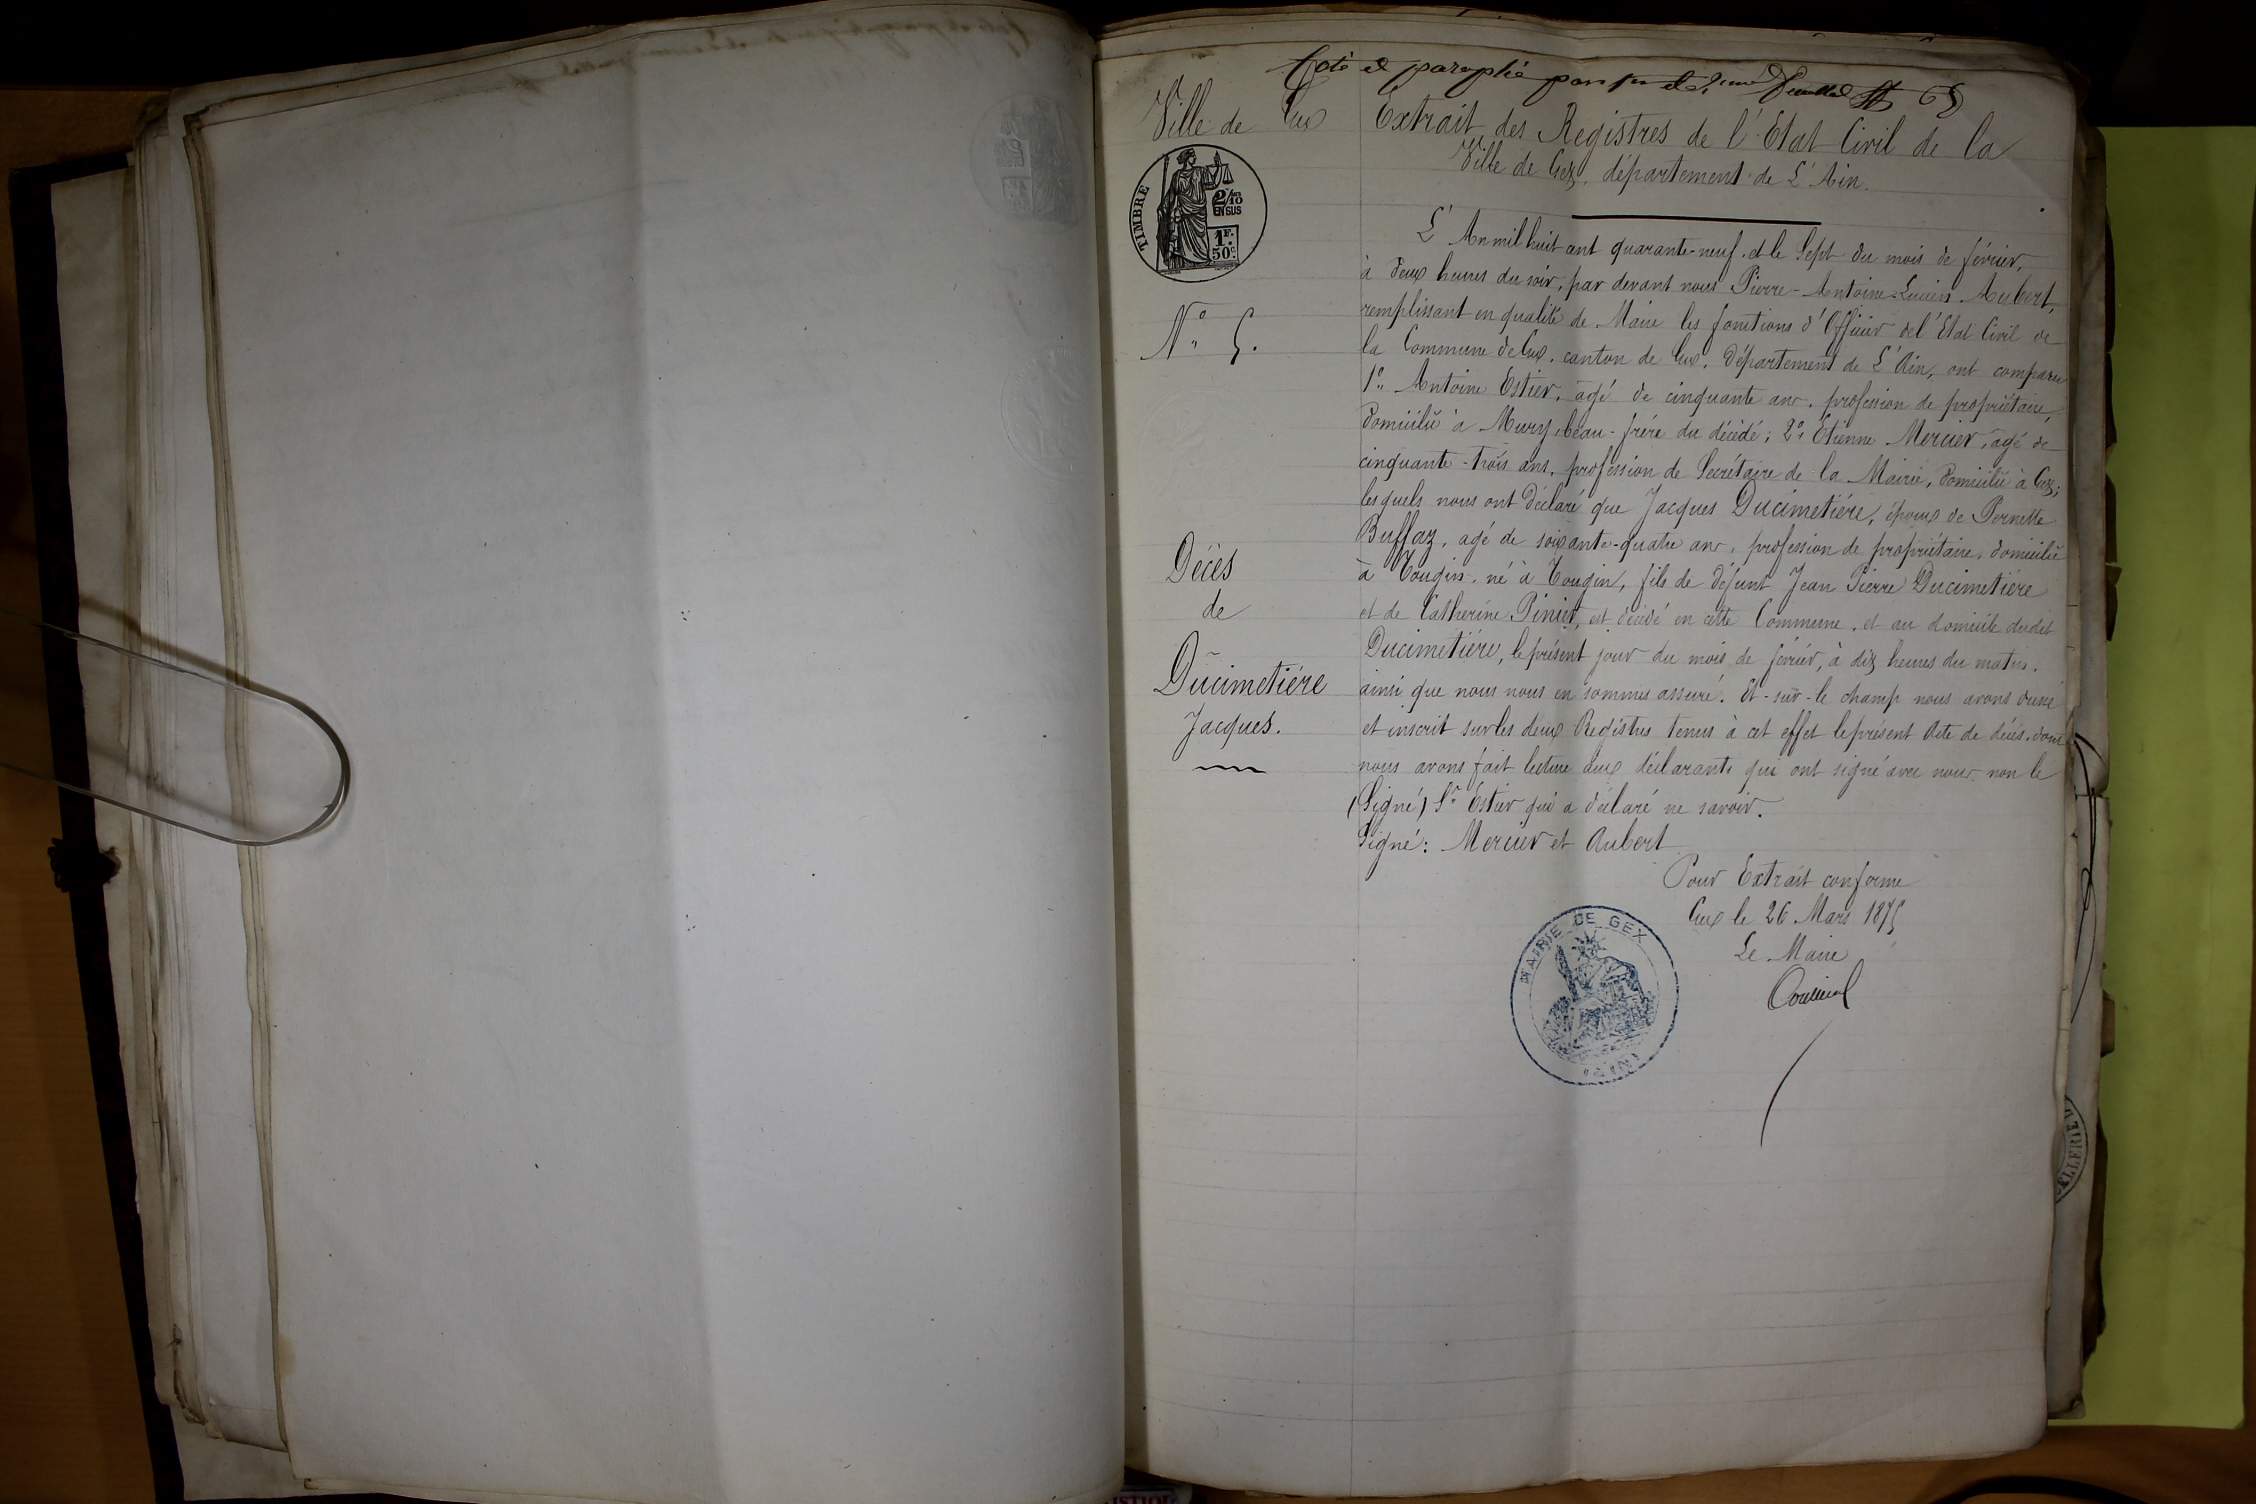 Coté et paraphé par
Ville de Gex
TIMBRE
2/10
EN SUS
1F.
50c.
Extrait des Registres de l'Etat Civil de la
Ville de Gex, département de L'Ain.
L'An mil huit cent quarante-neuf. et le Sept du mois de février,
à deux heures du soir, par devant nous Pierre-Antoine-Lucien Aubert,
remplissant en qualité de Maire les fonctions d'Officier de l'Etat Civil de
la Commune de Gex, canton de Gex, département de L'Ain, ont comparu
1o Antoine Estier, agé de cinquante ans, profession de propriétaire,
domicilié à Mury, beau-frére du décédé; 2o Etienne Mercier, agé de
cinquante-trois ans, profession de Secrétaire de la Mairie, domicilié à Gex;
lesquels nous ont déclaré que Jacques Ducimetiére, époux de Pernette
Buffaz, agé de soixante-quatre ans, profession de propriétaire, domicilié
à Tougin, né à Tougin, fils de défunt Jean Pierre Ducimetiére
et de Catherine Piniet, est décédé en cette Commune, et au domicile dudit
Ducimetiére, le présent jour du mois de février, à dix heures du matin.
ainsi que nous nous en sommes assuré. Et-sur-le champ nous avons dressé
et inscrit sur les deux Registres tenus à cet effet le présent Acte de décés, dont
nous avons fait lecture aux déclarants qui ont signé avec nous, non le
(Signé) Sr Estier qui a déclaré ne savoir.
Signé: Mercier et Aubert
No 5.
Décès
de
Ducimetiére
Jacques.
Pour Extrait conforme
Gex le 26 Mars 1875
Le Maire
MAIRIE DE GEX
(AIN)